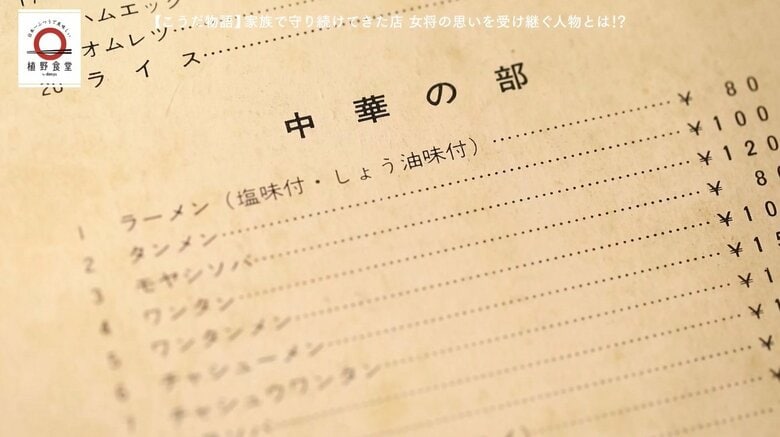 【こうだ物語】家族で守り続けてきた店 女将の思いを受け継ぐ人物とは!?
日本一ふつうで美味しい
植野食堂
by dancyu
ハムエッグ
オムレツ
20 ライス
中華の部
1 ラーメン（塩味付・しょう油味付）¥ 80
2 タンメン ¥ 100
3 モヤシソバ ¥ 120
4 ワンタン ¥ 80
5 ワンタンメン ¥ 10
6 チャシューメン ¥ 15
7 チャシュウワンタン ¥ 1